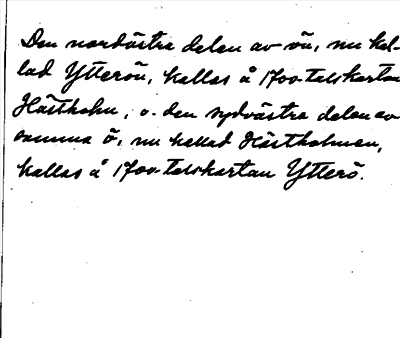 Den nordöstra delen av ön, nu kal-
lad Ytterön, kallas å 1700-talskartan
Hästholm, o. den sydvästra delen av
samma ö, nu kallad Hästholmen,
kallas å 1700-talskartan Ytterö.